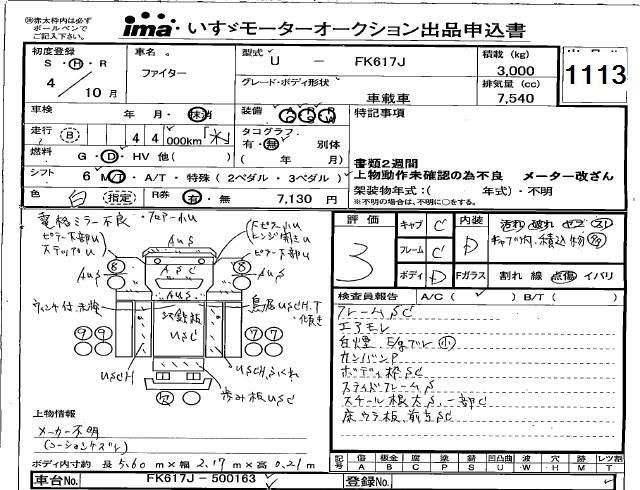 ㊟赤太枠内は必ず
ボールペンで
ご記入下さい。
ima いすゞモーターオークション出品申込書
初度登録
S・H・R
4/10月
車名
ファイター
型式 U － FK617J
積載 (kg)
3,000
1113
グレード・ボディ形状
車載車
排気量 (cc)
7,540
車検 年・月・抹消
装備 A/C P/S P/W
特記事項
走行 B 44000km「メ」
タコグラフ
有・無 別体
( 年 月)
燃料 G・D・HV 他( )
シフト 6 M/T・A/T・特殊(2ペダル・3ペダル)
書類2週間
上物動作未確認の為不良 メーター改ざん
架装物年式:( 年式)・不明
※不明の場合は、不明に○をする。
色 白 (指定) R券 有・無 7,130 円
電格ミラー不良
ピラー下部U
ステップU
AUS
ASC
AUS
AUS
AUS
ピラー下部U
8 8
縞鋼板
USC
9 9 7 7
USCH
歩み板USC
評価
3
キャブ C
フレーム C
ボディ D
内装 D
汚れ 破れ ヤケ スレ
キャブ内、積込物多
Fガラス 割れ 線 点傷 イバリ
検査員報告 A/C( ✓ ) B/T( )
フレームSC
エアモレ
白煙、E/gブレ小
カンバンP
ボディ枠SC
スライドフレームS
スチール根太S、一部C
床ウラ板、前立SC
上物情報
メーカー不明
ボディ内寸約 長5.60m×幅2.17m×高0.21m
記号 傷A 板金B 腐C 塗P 錆S 凹凸曲U 波W 穴H 無M レツ割T
車台No. FK617J-500163
登録No.